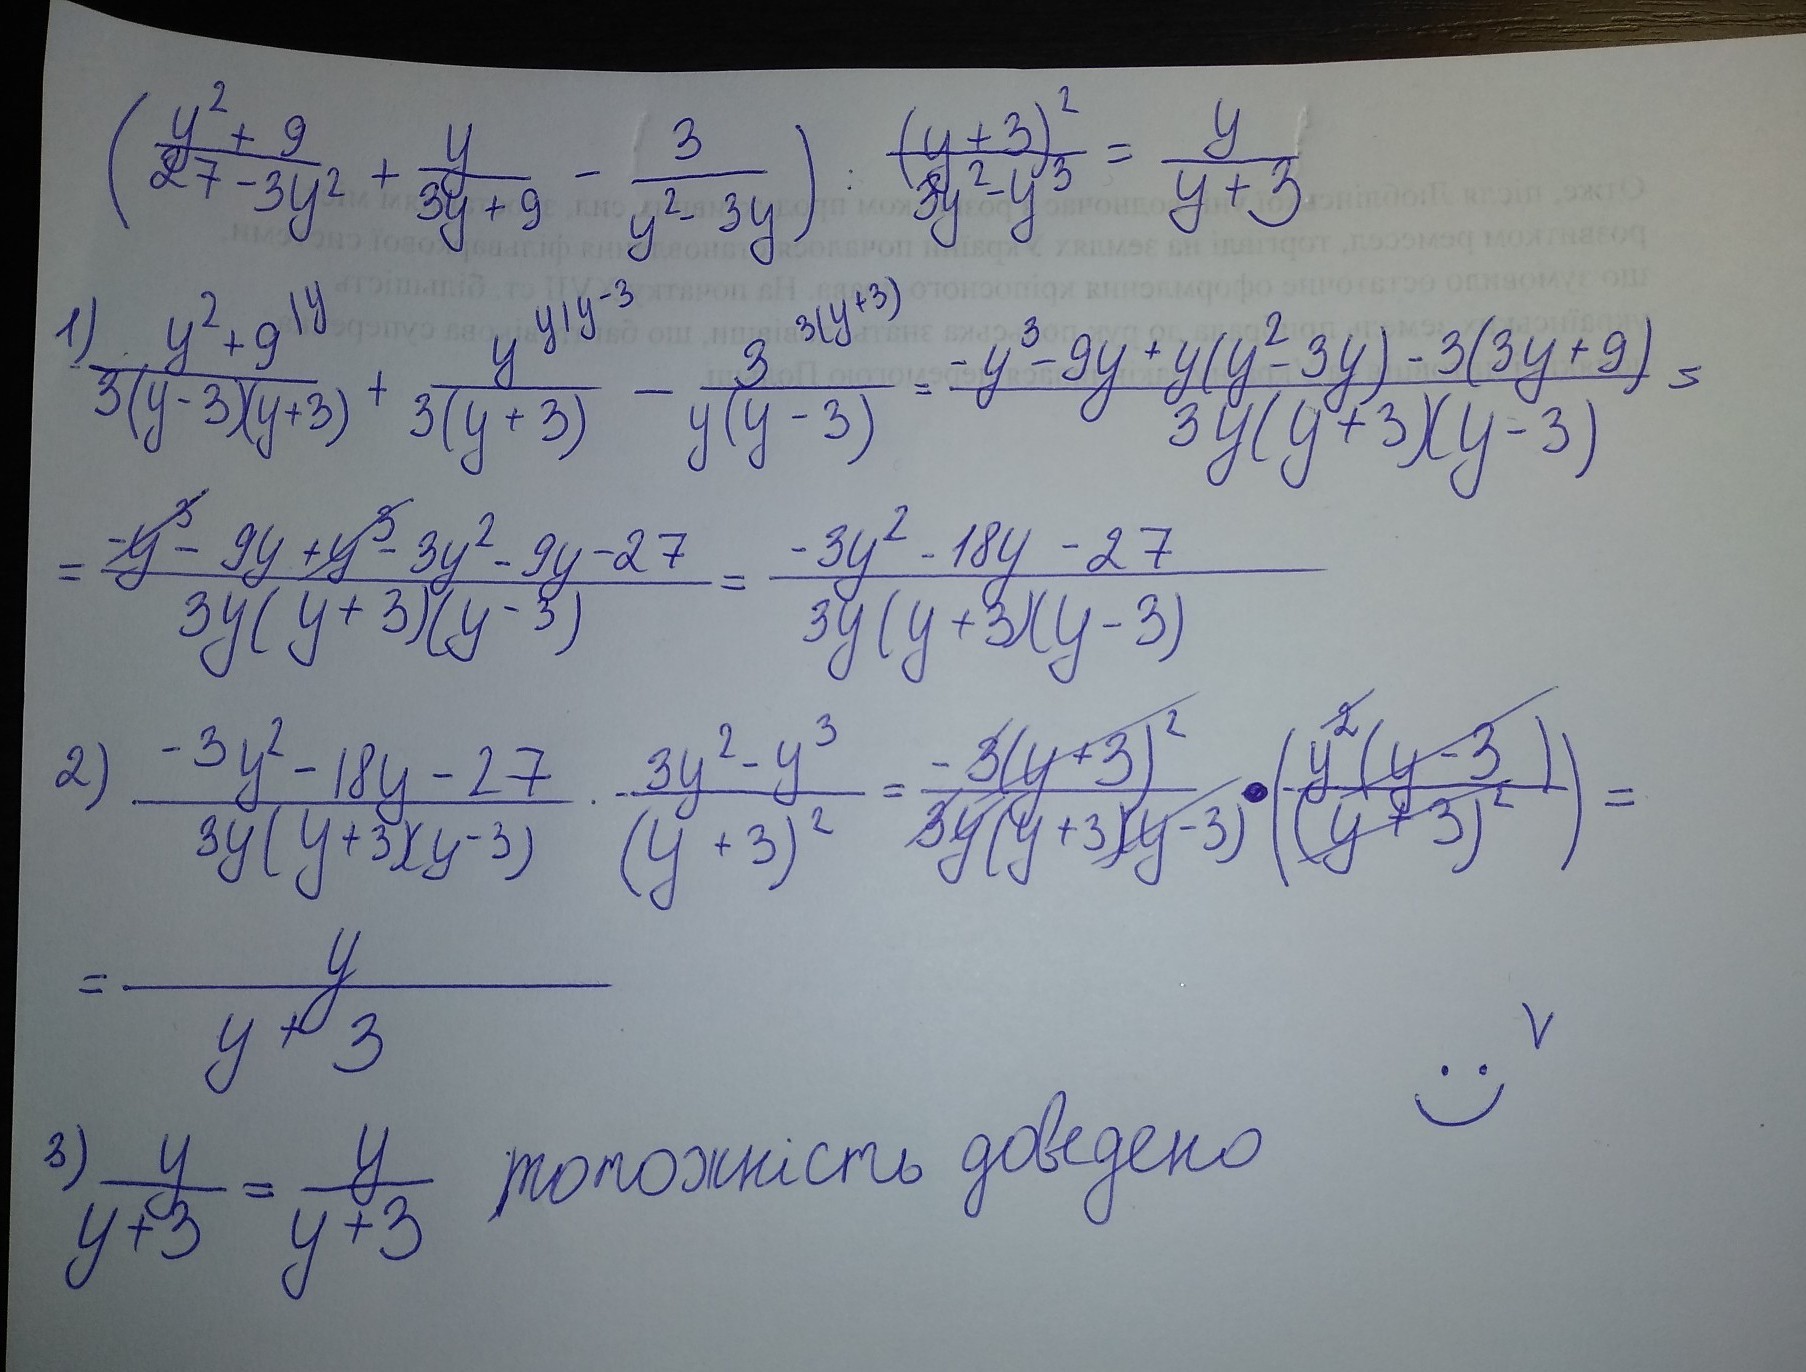 ( (y² + 9)/(27 - 3y²) + y/(3y + 9) - 3/(y² - 3y) ) : (y + 3)²/(3y² - y³) = y/(y + 3)
1) (y² + 9)/(3(y - 3)(y + 3)) |y + y/(3(y + 3)) y|y-3 - 3/(y(y - 3)) 3(y+3) = (-y³ - 9y + y(y² - 3y) - 3(3y + 9))/(3y(y + 3)(y - 3)) =
= (-y³ - 9y + y³ - 3y² - 9y - 27)/(3y(y + 3)(y - 3)) = (-3y² - 18y - 27)/(3y(y + 3)(y - 3))
2) (-3y² - 18y - 27)/(3y(y + 3)(y - 3)) · (3y² - y³)/(y + 3)² = (-3(y + 3)²)/(3y(y + 3)(y - 3)) • ( y²(y - 3)/(y + 3)² ) =
= y/(y + 3)
3) y/(y + 3) = y/(y + 3) тотожність доведено